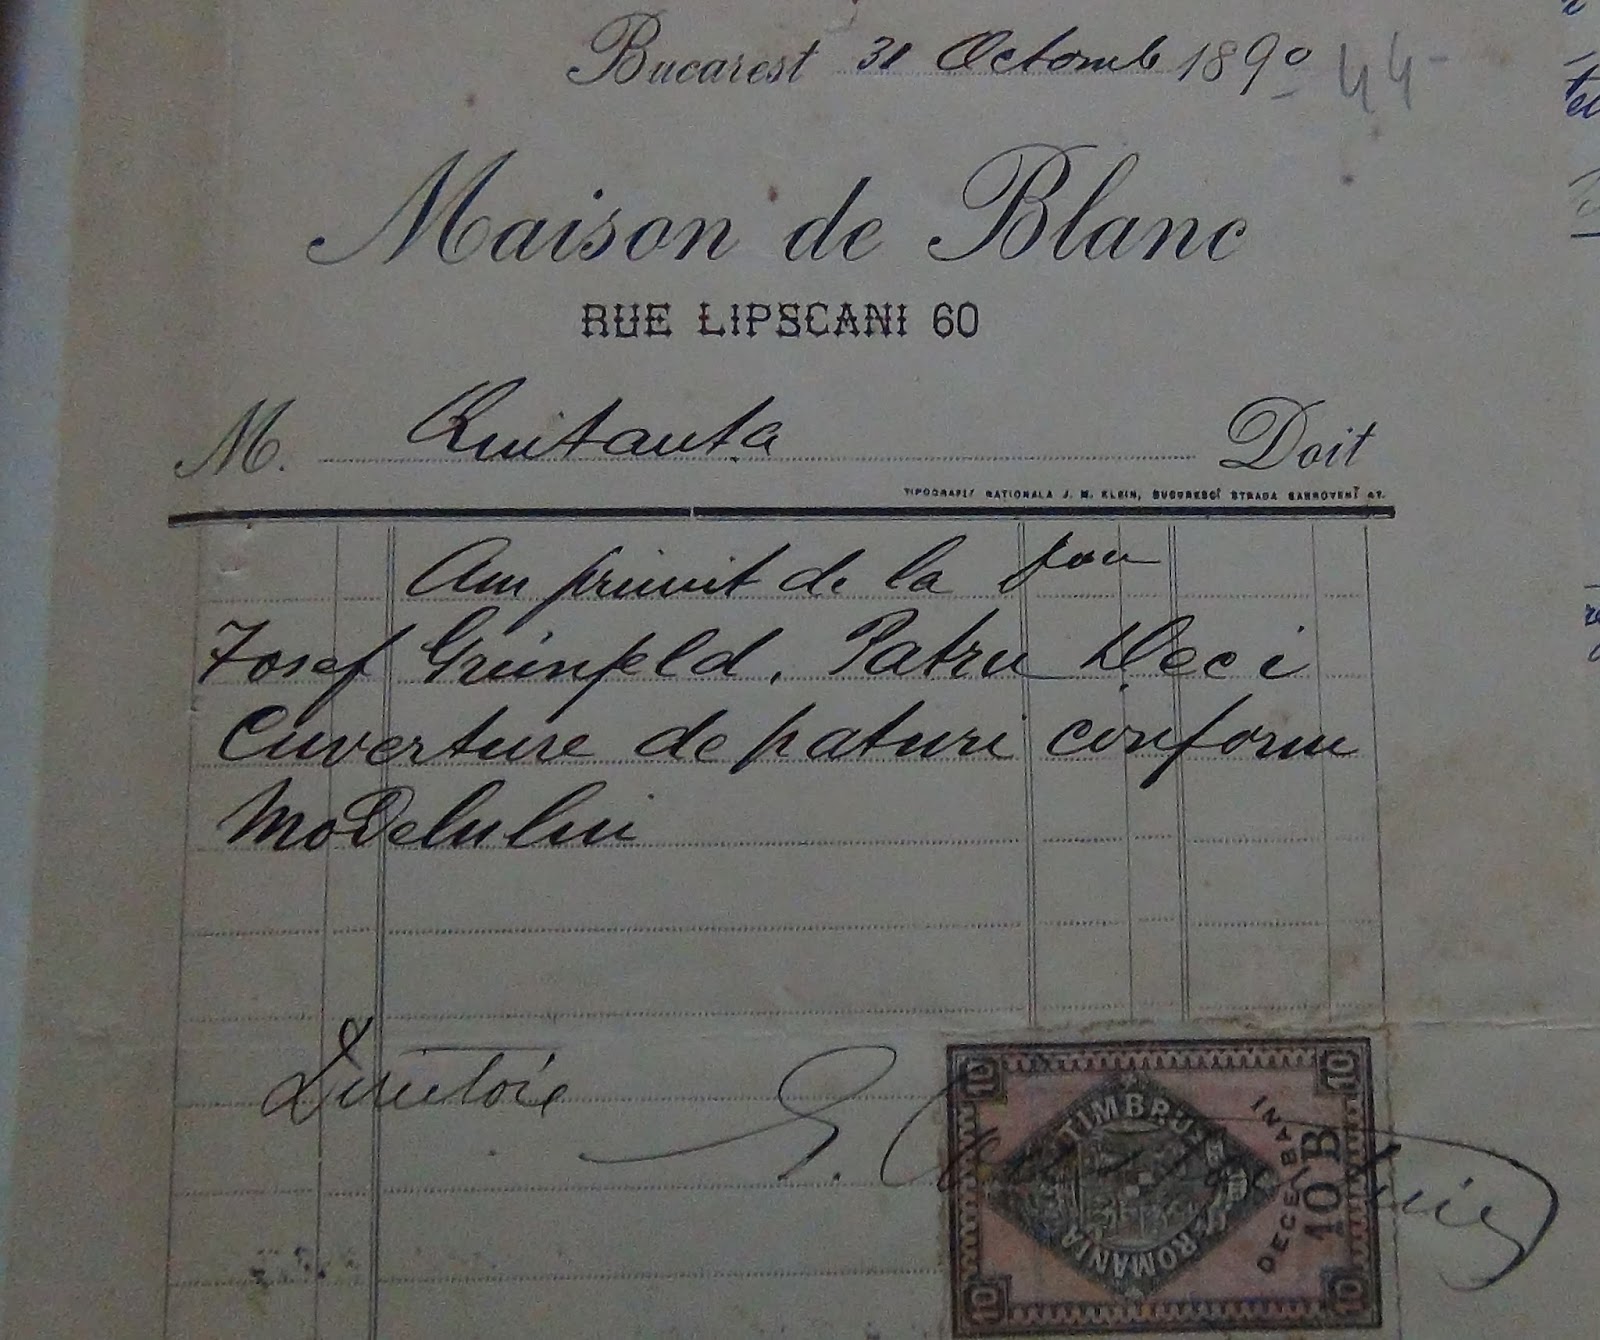 Bucarest 31 Octomb 1890 44-
Maison de Blanc
RUE LIPSCANI 60
M. Quitanța Doit
NATIONALA J. M. KLEIN, BUCURESCI STRADA
Am primit de la
Josef Grünfeld, Patru Deci
Cuverture de paturi conform
Modelului
E.
TIMBRU
ROMANIA
DECE BANI
10 B
10 10 10 10